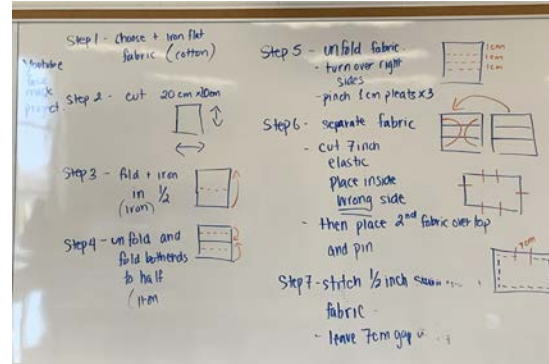 Youtube
face
mask
project.
Step 1 - choose + iron flat
fabric (cotton)
Step 2 - cut 20cm x20cm
Step 3 - fold + iron
in 1/2
(iron)
Step 4 - unfold and
fold both ends
to half
(iron
Step 5 - unfold fabric.
- turn over right
sides
- pinch 1cm pleats x3
1cm
1cm
1cm
Step 6 - separate fabric
- cut 7inch
elastic
place inside
wrong side
- then place 2nd fabric over top
and pin
Step 7 - stitch 1/2 inch
fabric
- leave 7cm gap
7cm